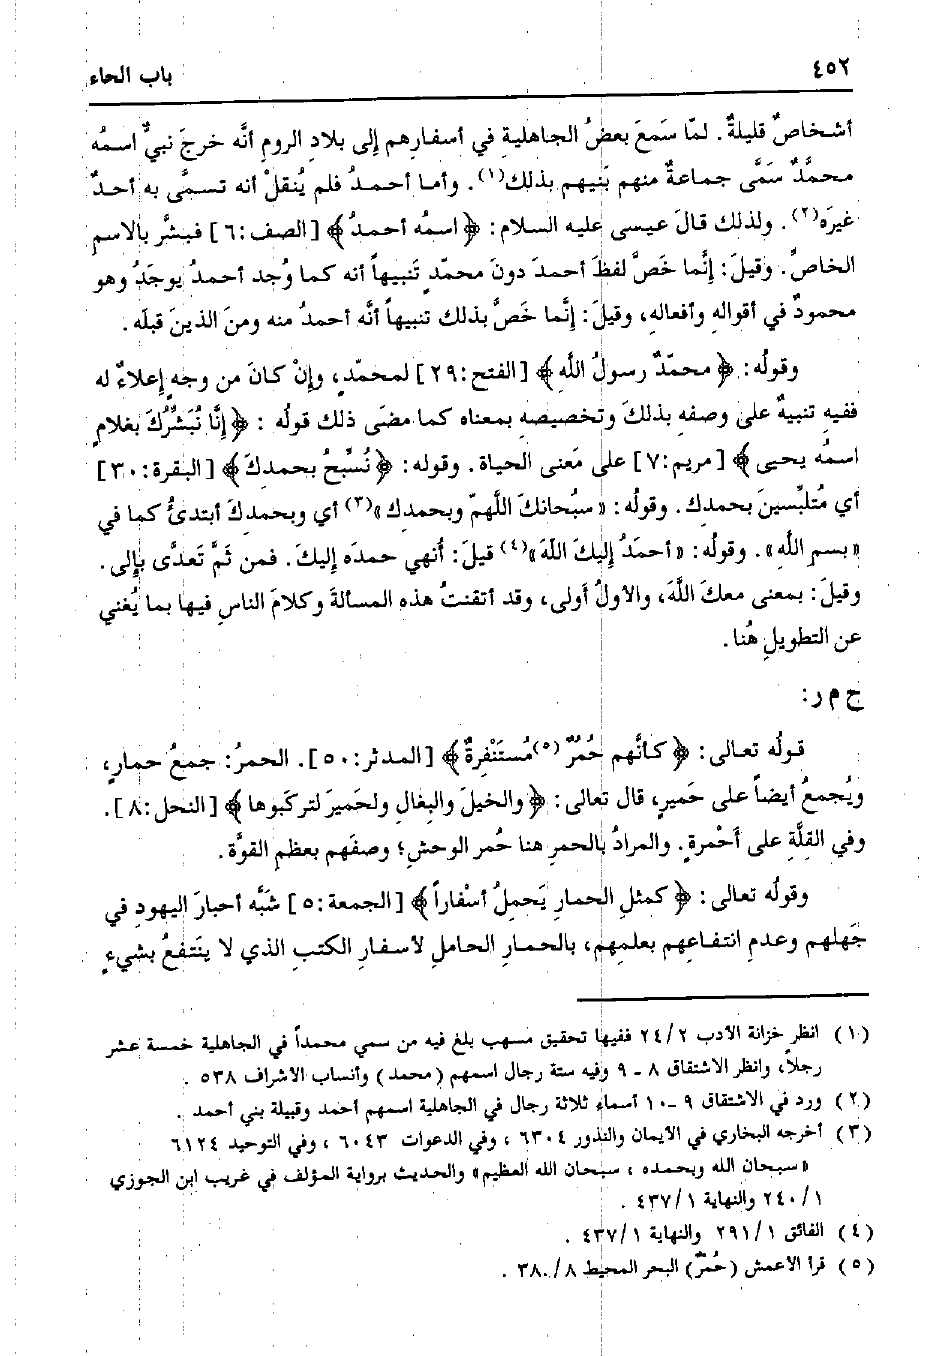 ٤٥٢
باب الحاء
أشخاصٌ قليلةٌ. لمّا سَمعَ بعضُ الجاهلية في أسفارهم إلى بلادِ الرومِ أنَّه خرجَ نبيٌّ اسمُه
محمَّدٌ سَمَّى جماعةٌ منهم بَنيهم بذلك(١). وأما أحمدُ فلم يُنقلْ أنه تسمَّى به أحدٌ
غيرَه(٢). ولذلك قالَ عيسى عليه السلام: ﴿اسمُه أحمدُ﴾ [الصف:٦] فبشَّر بالاسمِ
الخاصِّ. وقيلَ: إنَّما خَصَّ لفظَ أحمدَ دونَ محمّدٍ تَنبيهاً أنه كما وُجد أحمدُ يوجَدُ وهو
محمودٌ في أقوالِه وأفعالِهِ، وقيلَ: إنَّما خَصَّ بذلك تنبيهاً أنَّه أحمدُ منه ومنَ الذينَ قبلَه.
وقولُه: ﴿محمّدٌ رسولُ اللَّه﴾ [الفتح:٢٩] لمحمّدٍ، وإنْ كانَ من وجهٍ إعلاءٌ له
ففيهِ تنبيهٌ على وصفِه بذلكَ وتخصيصِه بمعناه كما مضَى ذلك قولُه : ﴿إنَّا نُبَشِّرُكَ بغلامٍ
اسمُه يحيى﴾ [مريم:٧] على مَعنى الحياة. وقوله: ﴿نُسبِّحُ بحمدِكَ﴾ [البقرة:٣٠]
أي مُتلبِّسينَ بحمدِك. وقولُه: «سبُحانكَ اللَّهمّ وبحمدِك»(٣) أي وبحمدِكَ أبتدئُ كما في
«بسمِ اللَّهِ». وقولُه: «أحمَدُ إليكَ اللَّهَ»(٤) قيلَ: أُنهي حمدَه إليكَ. فمن ثَمَّ تَعدَّى بإلى.
وقيلَ: بمعنى معكَ اللَّهَ، والأولُ أَولى، وقد أتقنتُ هذهِ المسألةَ وكلامَ الناسِ فيها بما يُغني
عن التطويلِ هُنا.
ح م ر:
قولُه تعالى: ﴿كأنَّهم حُمُرٌ(٥)مُستَنْفِرةٌ﴾ [المدثر:٥٠]. الحمرُ: جمعُ حمارٍ،
ويُجمعُ أيضاً على حَميرٍ، قال تعالى: ﴿والخيلَ والبِغالِ ولحَميرَ لتركَبوها﴾ [النحل:٨].
وفي القلَّةِ على أَحْمرة. والمرادُ بالحمرِ هنا حُمر الوحشِ؛ وصفَهم بعظمِ القوَّة.
وقولُه تعالى: ﴿كمثلِ الحمارِ يَحملُ أسْفاراً﴾ [الجمعة:٥] شَبَّه أحبارَ اليهودِ في
جَهلهم وعدمِ انتفاعِهم بعلمِهم، بالحمارِ الحاملِ لأسفارِ الكتبِ الذي لا ينَتفعُ بشيءٍ
(١) انظر خزانة الأدب ٢٤/٢ ففيها تحقيق مسهب بلغ فيه من سمي محمداً في الجاهلية خمسة عشر
رجلاً، وانظر الاشتقاق ٨ - ٩ وفيه ستة رجال اسمهم (محمد) وأنساب الأشراف ٥٣٨ .
(٢) ورد في الاشتقاق ٩ -١٠ أسماء ثلاثة رجال في الجاهلية اسمهم أحمد وقبيلة بني أحمد .
(٣) أخرجه البخاري في الأيمان والنذور ٦٣٠٤ ، وفي الدعوات ٦٠٤٣ ، وفي التوحيد ٦١٢٤
«سبحان الله وبحمده ، سبحان الله العظيم» والحديث برواية المؤلف في غريب ابن الجوزي
٢٤٠/١ والنهاية ٤٣٧/١ .
(٤) الفائق ٢٩١/١ والنهاية ٤٣٧/١ .
(٥) قرأ الأعمش (حُمْرٌ) البحر المحيط ٣٨٠/٨ .